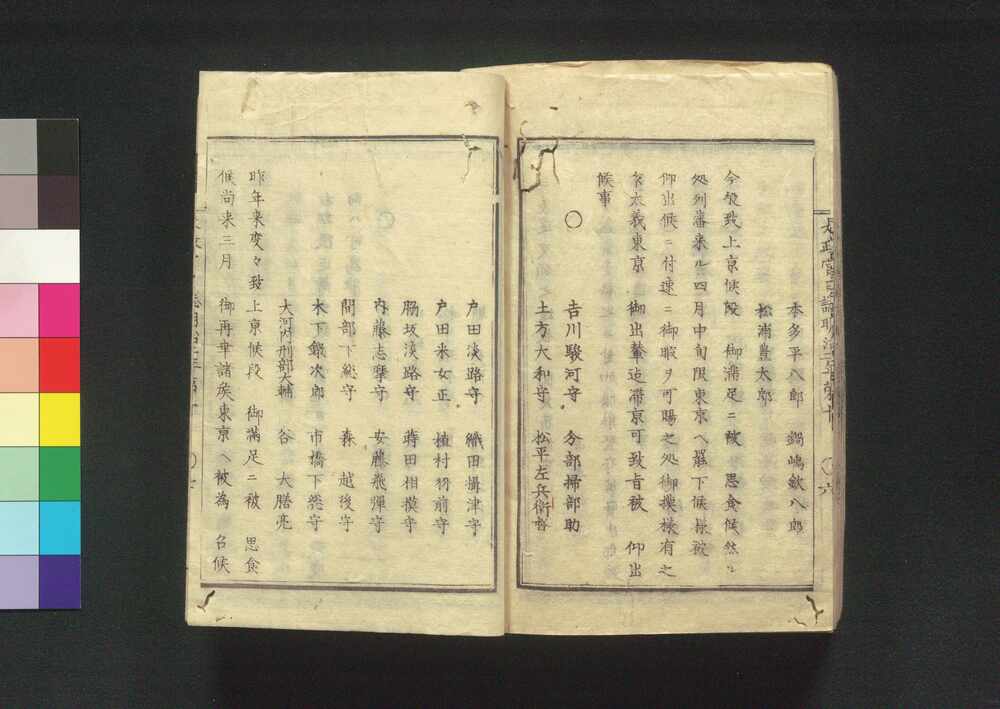 本多平八郎　鍋嶋欽八郎
松浦豊太郎
今般致上京候段　御満足ニ被　思食候然ル
処列藩来ル四月中旬限東京ヘ罷下候様被
仰出候ニ付速ニ御暇ヲ可賜之処御摸様有之
東京　御出輦迄滞京可致旨被　仰出
候事
○
吉川駿河守　分部掃部助
土方大和守　松平左兵衛督
戸田淡路守　織田摂津守
戸田采女正　植村羽前守
脇坂淡路守　蒔田相摸守
内藤志摩守　安藤飛騨守
間部下総守　森　越後守
木下鍛次郎　市橋下総守
大河内刑部大輔　谷　大膳亮
昨年来度々致上京候段　御満足ニ被　思食
候尚来三月　御再幸諸侯東京ヘ被為　召候
六